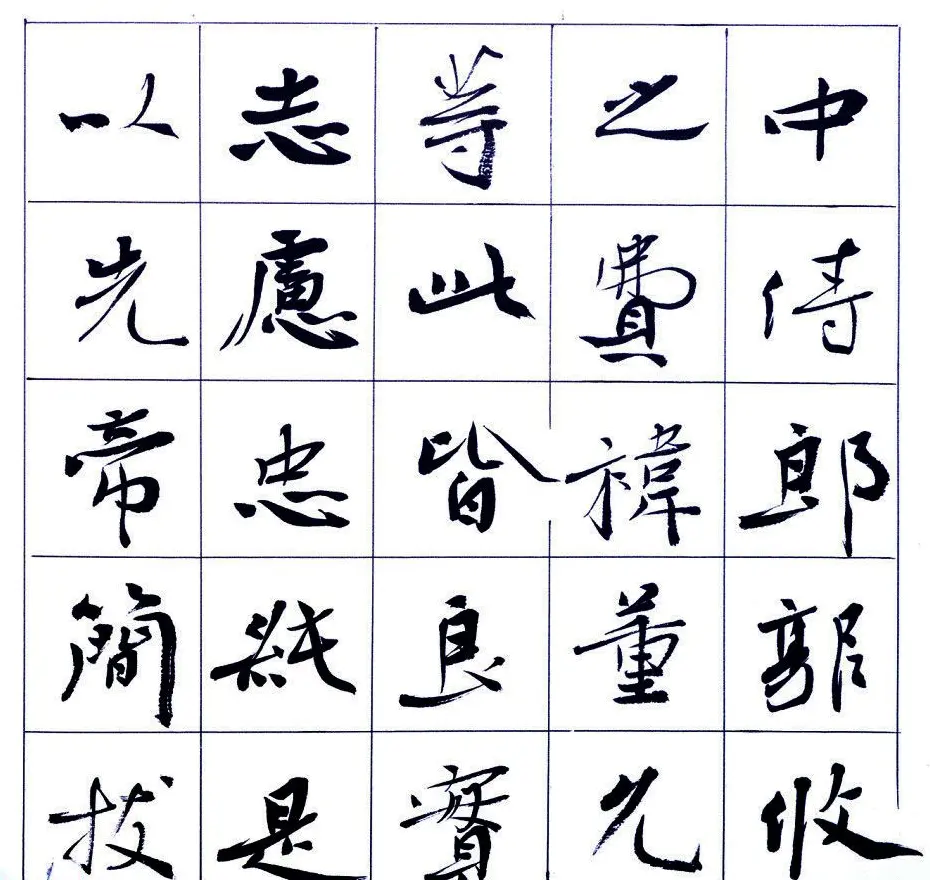 中侍郎郭攸
之費禕董允
等此皆良實
志慮忠純是
以先帝簡拔